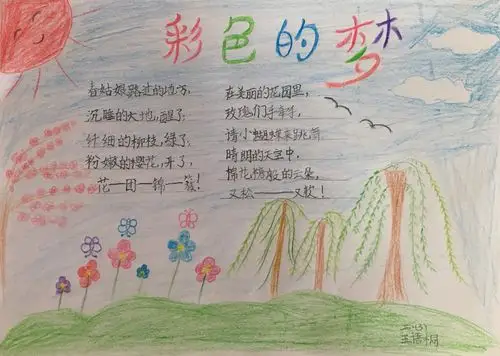 彩色的梦
春姑娘路过的地方，
沉睡的大地，醒了；
纤细的柳枝，绿了；
粉嫩的樱花，开了，
花一团一锦一簇！
在美丽的花园里，
玫瑰们手牵手，
请小蝴蝶来跳舞
晴朗的天空中，
棉花糖般的云朵，
又松——又软！
二（3）
王语